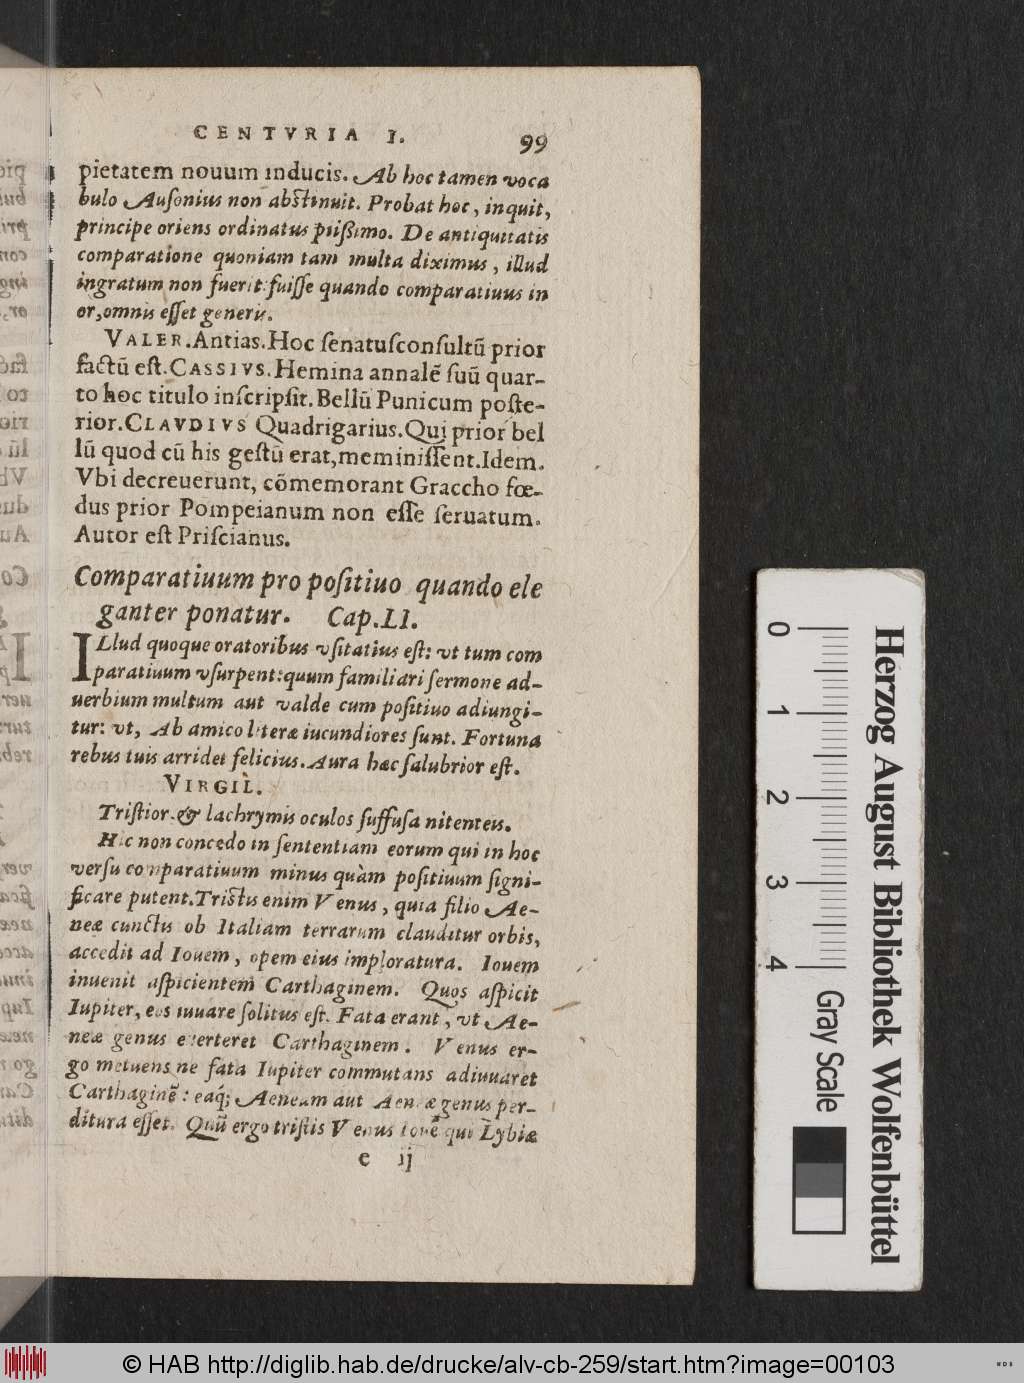 CENTVRIA I. 99
pietatem nouum inducis. Ab hoc tamen voca
bulo Auſonius non abſtinuit. Probat hoc, inquit,
principe oriens ordinatus piißimo. De antiquitatis
comparatione quoniam tam multa diximus, illud
ingratum non fuerit fuiſſe quando comparatiuus in
or, omnis eſſet generis.
VALER. Antias. Hoc ſenatuſconſultũ prior
factũ eſt. CASSIVS. Hemina annalẽ ſuũ quar-
to hoc titulo inſcripſit. Bellũ Punicum poſte-
rior. CLAVDIVS Quadrigarius. Qui prior bel
lũ quod cũ his geſtũ erat, meminiſſent. Idem.
Vbi decreuerunt, cõmemorant Graccho fœ-
dus prior Pompeianum non eſſe ſeruatum.
Autor eſt Priſcianus.
Comparatiuum pro poſitiuo quando ele
ganter ponatur. Cap. LI.
ILlud quoque oratoribus vſitatius eſt: vt tum com
paratiuum vſurpent: quum familiari ſermone ad-
uerbium multum aut valde cum poſitiuo adiungi-
tur: vt, Ab amico literæ iucundiores ſunt. Fortuna
rebus tuis arridet felicius. Aura hæc ſalubrior eſt.
VIRGIL.
Triſtior & lachrymis oculos ſuffuſa nitenteis.
Hic non concedo in ſententiam eorum qui in hoc
verſu comparatiuum minus quàm poſitiuum ſigni-
ficare putent. Triſtis enim Venus, quia filio Ae-
neæ cunctis ob Italiam terrarum clauditur orbis,
accedit ad Iouem, opem eius imploratura. Iouem
inuenit aſpicientem Carthaginem. Quos aſpicit
Iupiter, eos iuuare ſolitus eſt. Fata erant, vt Ae-
neæ genus euerteret Carthaginem. Venus er-
go metuens ne fata Iupiter commutans adiuuaret
Carthaginẽ: eáq; Aeneam aut Aeneæ genus per-
ditura eſſet. Quũ ergo triſtis Venus Iouẽ qui Lybiæ
e ij
0 1 2 3 4
Gray Scale
Herzog August Bibliothek Wolfenbüttel
© HAB http://diglib.hab.de/drucke/alv-cb-259/start.htm?image=00103